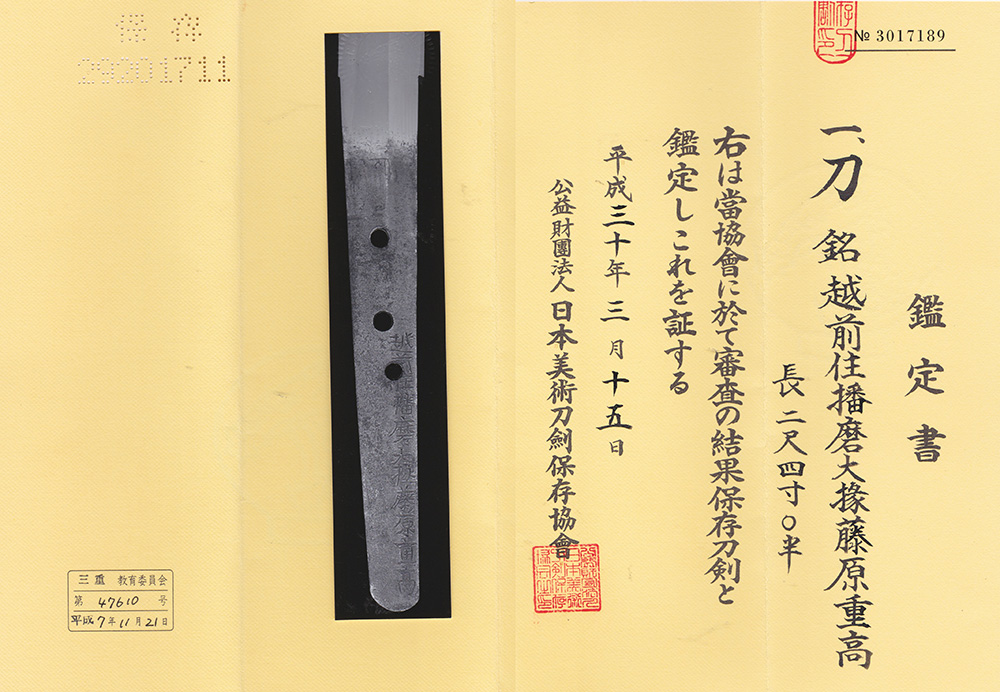 № 3017189
鑑定書
一、刀 銘 越前住播磨大掾藤原重高
長 二尺四寸〇半
右は當協會に於て審査の結果保存刀剣と
鑑定しこれを証する
平成三十年三月十五日
公益財團法人 日本美術刀劍保存協會
保存
29201711
三重 教育委員会
第 47610 号
平成7年11月21日